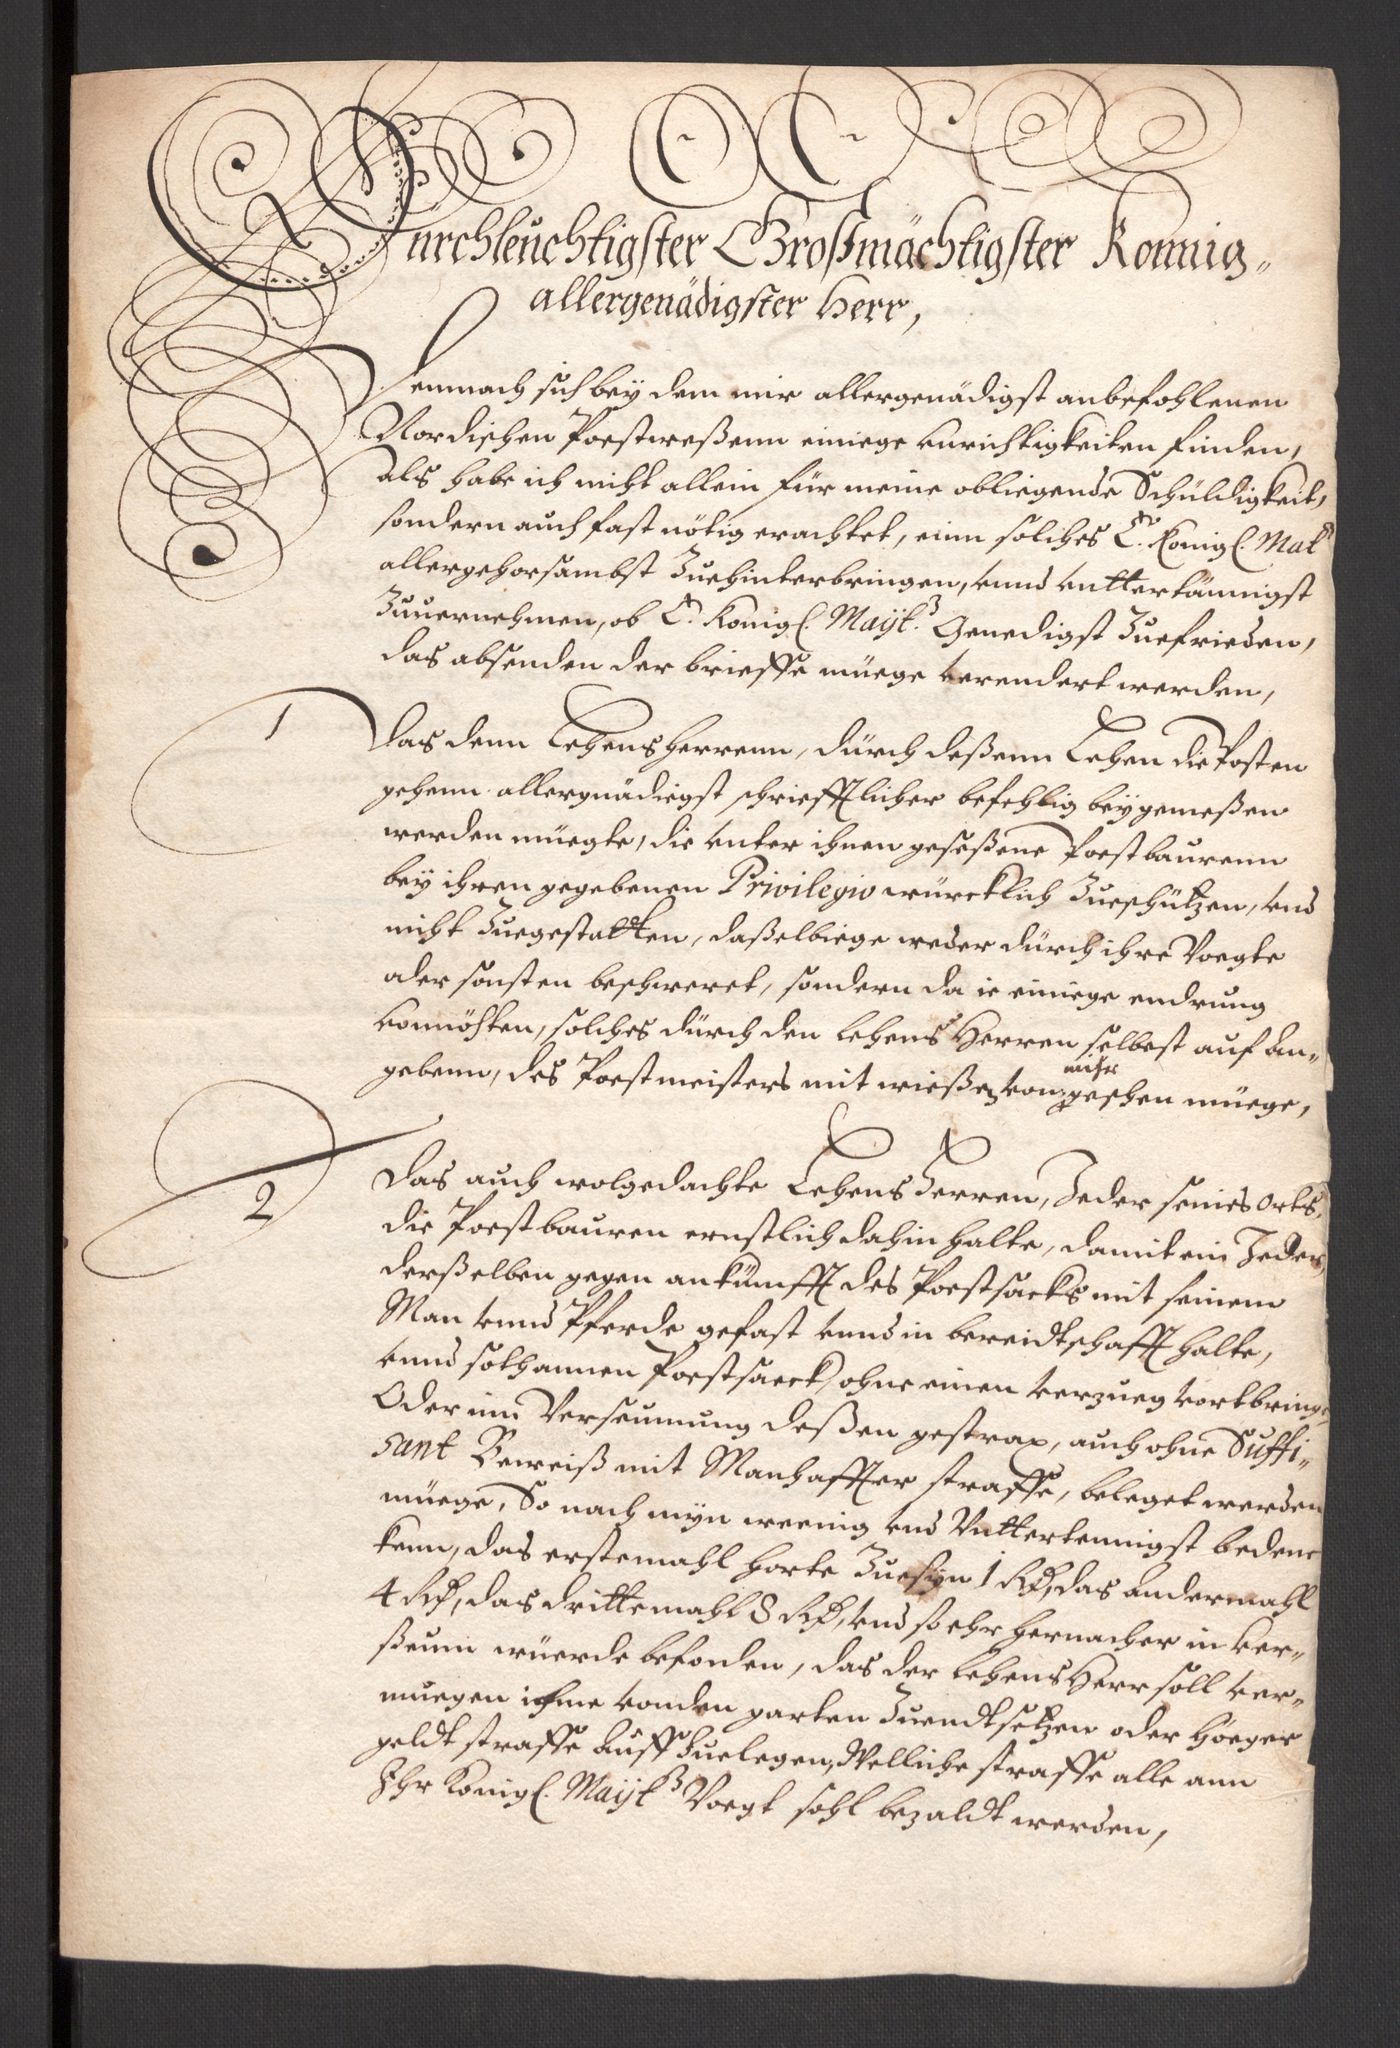 Durchleuchtigster Großmächtigster Konnig,,
allergenädigster Herr,
Demnach sich bey dem mir allergenädigst anbefohlenen
Nordischen Poestweßenn einiege unrichtigkeiten finden,
Als habe ich nicht allein für meine obliegende Schüldigkeit,
sondern auch fast nötig erachtet, einn solches E. Königl. Mat
allergehorsambst Zuehinterbringen, unnd unttertännigst
Zuuernehmen, ob E. Königl. Maÿt. Genedigst Zuefrieden,
das absenden der brieffe müege verendert werden,
1
Das denn Lehensherrenn, dürch deßenn Lehen die Posten
gehenn allergnädiegst schriefftlicher befehlig beygemeßen
werden müegte, die unter ihnen geseßene Poestbaurenn
bey ihren gegebenen Privilegio würcklich Zueschützen, und
nicht Zuegestatten, daßelbiege weder dürch ihre Voegte
oder sonsten beschweret, sondern da ie einiege endrung
vonnöhten, solches dürch den Lehens Herren selbest auf an,,
gebenn, des Poestmeisters mit wießen vorgesehen müege,
2
Das auch wolgedachte Lehens Herren, Jeder seines orts,
die Poestbauren ernstlich dahin halte, damit ein Jeder
derßelben gegen ankümfft des Poestsacks mit seinem
Man unnd Pferde gefast unnd in bereidtschafft halte,
unnd sothannen Poestsaeck, ohne einen verzueg vortbringe,
Oder inn Verseumung deßen gestrax, auch ohne Suffi,,
sant Beweiß mit Manhaffter straffe, beleget werden
müege, So nach myn weenig und Unttertennigst bedenc
kenn, das erstemahl horte Zuesyn 1 Rd, das andermahl
4 Rd, das drittemahl 8 Rd, und so ehr hernacher in ver,,
ßeum würde befonden, das der Lehens Herr soll ver,,
muegen ihme vonden garten Zuendtsetzen oder höeger
geldt straffe auff Zuelegen, Welliche straffe alle ann
Ihr Königl. Maÿt Voegt sohl bezaldt werden,